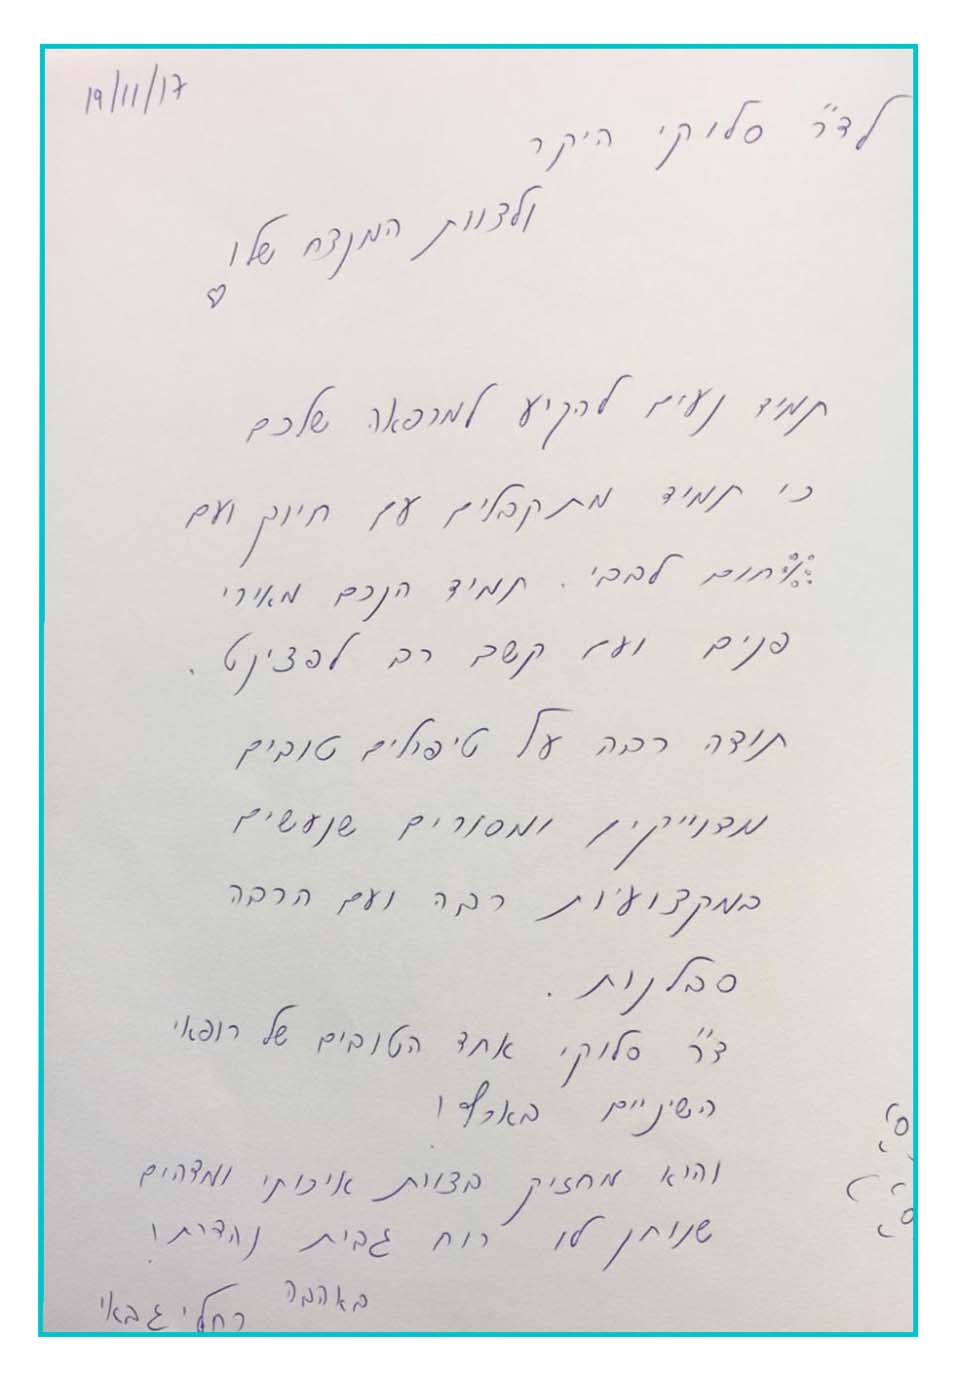 19/11/17
לד"ר סלוקי היקר
ולצוות המנצח שלו
תמיד נעים להקיע למרפאה שלכם
כי תמיד מתקבלים עם חיוך ועם
חום לבבי. תמיד הנכם מאירי
פנים ועם קשב רב לפציינט.
תודה רבה על טיפולים טובים
מדוייקים ומסורים שנעשים
במקצועיות רבה ועם הרבה
סבלנות.
ד"ר סלוקי אחד הטובים של רופאי
השיניים בארץ!
והיא מחזיק בצוות איכותי ומדהים
שנותן לו רוח גבית נהדרת!
באהבה
רחלי גבאי